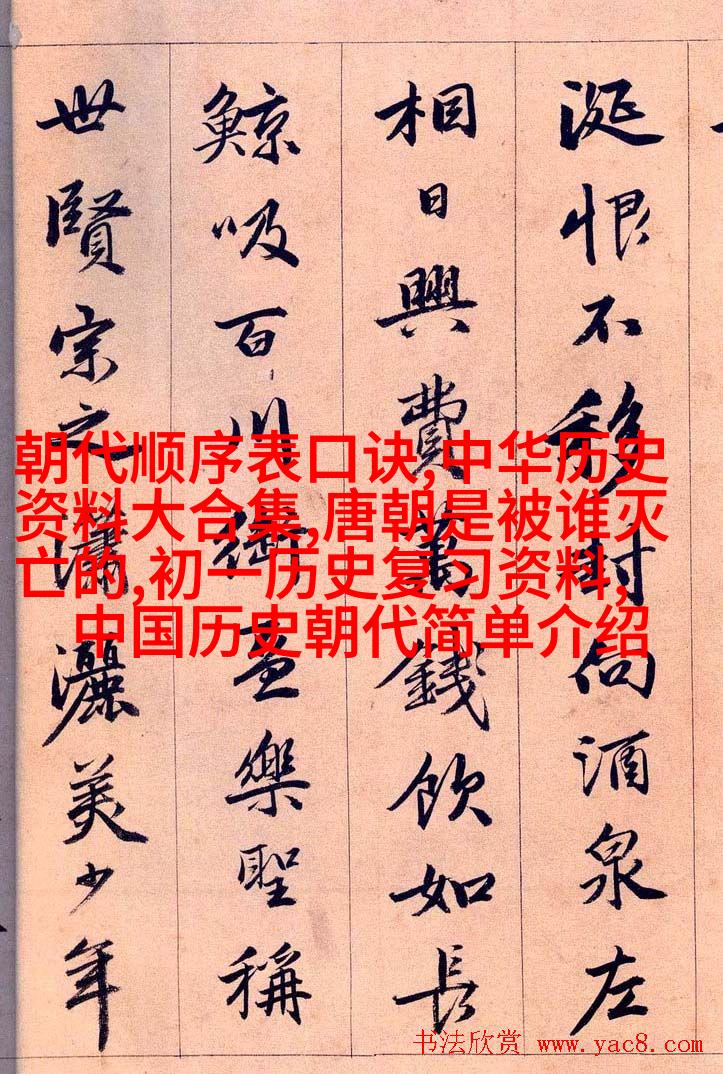 涎恨不移封向酒泉左
相日興費萬錢飲如長
鯨吸百川銜盃樂聖稱
世賢宗之瀟灑美少年
朝代顺序表口诀,中华历史
资料大合集,唐朝是被谁灭
亡的,初一历史复习资料,
中国历史朝代简单介绍
书法欣赏 www.yac8.com